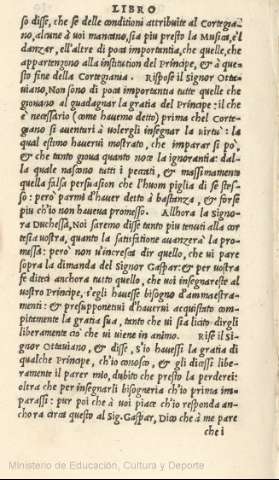 LIBRO
so disse, che se delle conditioni attribuite al Cortegia-
no, alcune à voi mancano, sia piu presto la Musica, e'l
danzar, e l'altre di poca importantia, che quelle, che
appartenono alla institution del Principe, & à que-
sto fine della Cortegiania. Rispose il Signor Otta-
uiano, Non sono di poca importantia tutte quelle che
giouano al guadagnar la gratia del Principe: il che
è necessario (come hauemo detto) prima chel Corte-
giano si auenturi à volergli insegnar la virtu': la
qual estimo hauerui mostrato, che imparar si po',
& che tanto gioua quanto noce la ignorantia: dal-
la quale nascono tutti i peccati, & massimamente
quella falsa persuasion che l'huom piglia di se stes-
so: però parmi d'hauer detto à bastanza, & forse
piu ch'io non haueua promesso. Allhora la Signo-
ra Duchessa, Noi saremo disse tanto piu tenuti alla cor
tesia uostra, quanto la satisfatione auanzerà la pro-
messa: però non u'incresca dir quello, che ui pare
sopra la dimanda del Signor Gaspar: & per uostra
fe diteci anchora tutto quello, che uoi insegnareste al
uostro Principe, s'egli hauesse bisogno d'ammaestra-
menti: & presuppenetiui d'hauerui acquistato com-
pitamente la gratia sua, tanto che ui sia licito dirgli
liberamente ciò che ui viene in animo. Rise il Si-
gnor Ottauiano, & disse, S'io hauessi la gratia di
qualche Principe, ch'io conosco, & gli dicessi liber-
amente il parer mio, dubito che presto la perderei:
oltra che per insegnarli bisogneria ch'io prima im-
parassi: pur poi che à voi piace ch'io responda an-
chora circa questo al Sig. Gaspar, Dico che à me pare
che i
Ministerio de Educación, Cultura y Deporte